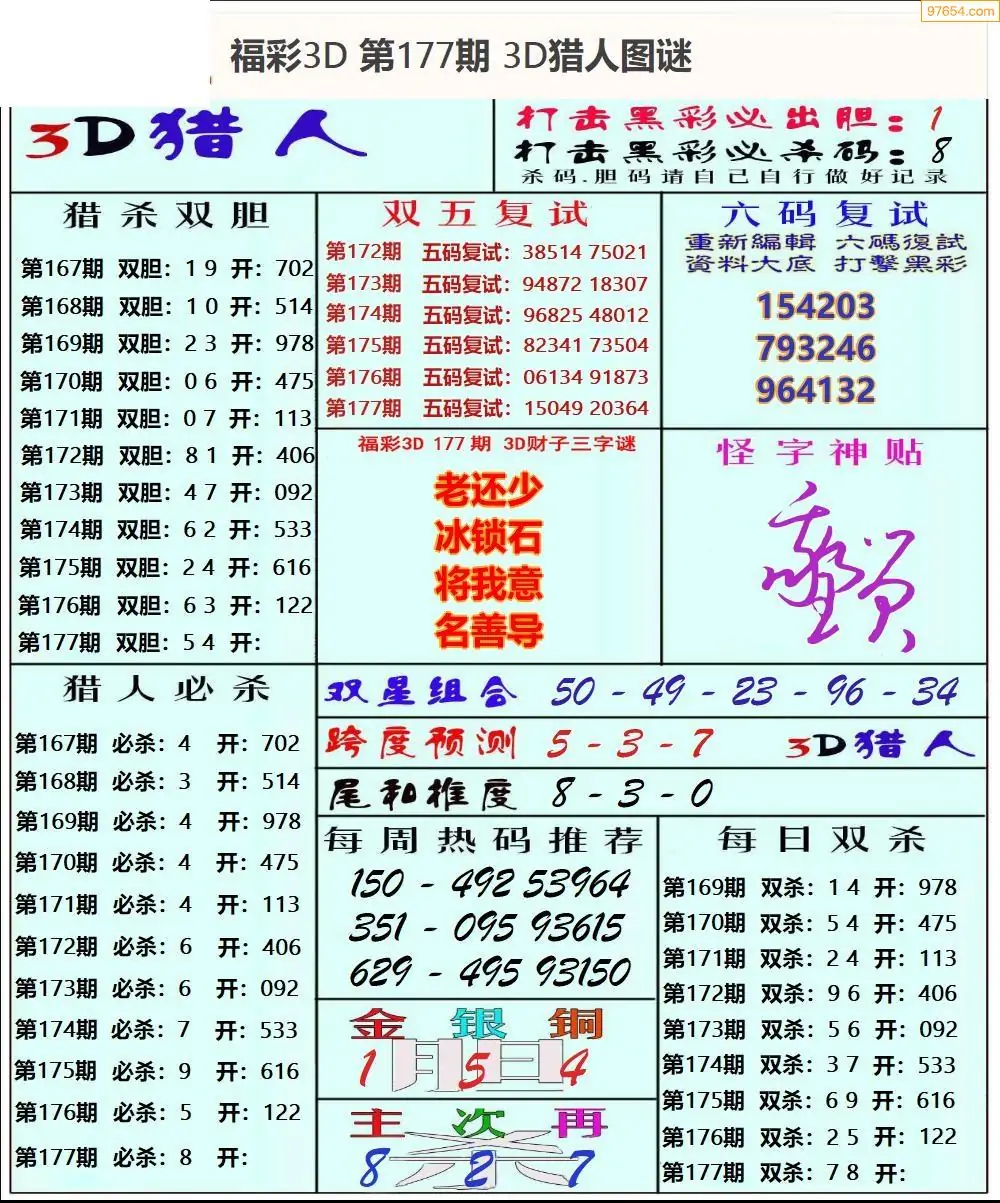 97654.com
福彩3D 第177期 3D猎人图谜
3D猎人
打击黑彩必出胆：1
打击黑彩必杀码：8
杀码.胆码请自己自行做好记录
猎杀双胆
第167期 双胆：1 9 开：702
第168期 双胆：1 0 开：514
第169期 双胆：2 3 开：978
第170期 双胆：0 6 开：475
第171期 双胆：0 7 开：113
第172期 双胆：8 1 开：406
第173期 双胆：4 7 开：092
第174期 双胆：6 2 开：533
第175期 双胆：2 4 开：616
第176期 双胆：6 3 开：122
第177期 双胆：5 4 开：
双五复试
第172期 五码复试：38514 75021
第173期 五码复试：94872 18307
第174期 五码复试：96825 48012
第175期 五码复试：82341 73504
第176期 五码复试：06134 91873
第177期 五码复试：15049 20364
六码复试
重新編輯 六碼復試
資料大底 打擊黑彩
154203
793246
964132
福彩3D 177 期 3D财子三字谜
老还少
冰锁石
将我意
名善导
怪字神贴
猎人必杀
第167期 必杀：4 开：702
第168期 必杀：3 开：514
第169期 必杀：4 开：978
第170期 必杀：4 开：475
第171期 必杀：4 开：113
第172期 必杀：6 开：406
第173期 必杀：6 开：092
第174期 必杀：7 开：533
第175期 必杀：9 开：616
第176期 必杀：5 开：122
第177期 必杀：8 开：
双星组合 50 - 49 - 23 - 96 - 34
跨度预测 5 - 3 - 7 3D猎人
尾和推度 8 - 3 - 0
每周热码推荐
150 - 492 53964
351 - 095 93615
629 - 495 93150
金 银 铜
胆
1 5 4
主 次 再
杀
8 2 7
每日双杀
第169期 双杀：1 4 开：978
第170期 双杀：5 4 开：475
第171期 双杀：2 4 开：113
第172期 双杀：9 6 开：406
第173期 双杀：5 6 开：092
第174期 双杀：3 7 开：533
第175期 双杀：6 9 开：616
第176期 双杀：2 5 开：122
第177期 双杀：7 8 开：